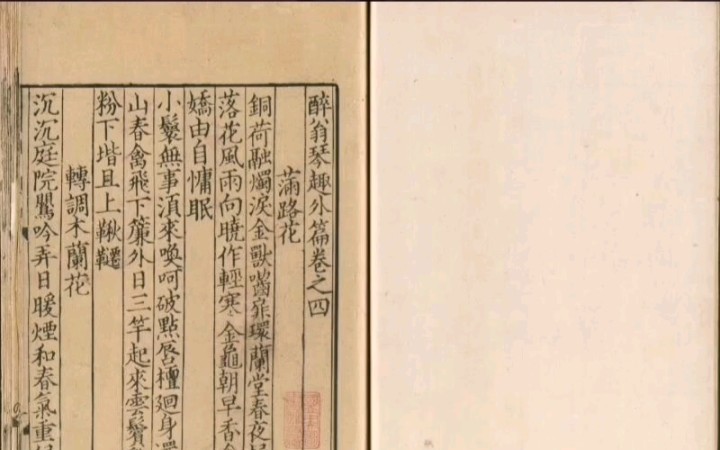 醉翁琴趣外篇卷之四
滿路花
銅荷融燭淚金獸嚙扉環蘭堂春夜
落花風雨向曉作輕寒金龜朝早香
嬌由自慵眠
小鬟無事須來喚呵破點唇檀廻身
山春禽飛下簾外日三竿起來雲鬢
粉下堦且上鞦韆
轉調木蘭花
沉沉庭院鸎吟弄日暖煙和春氣重